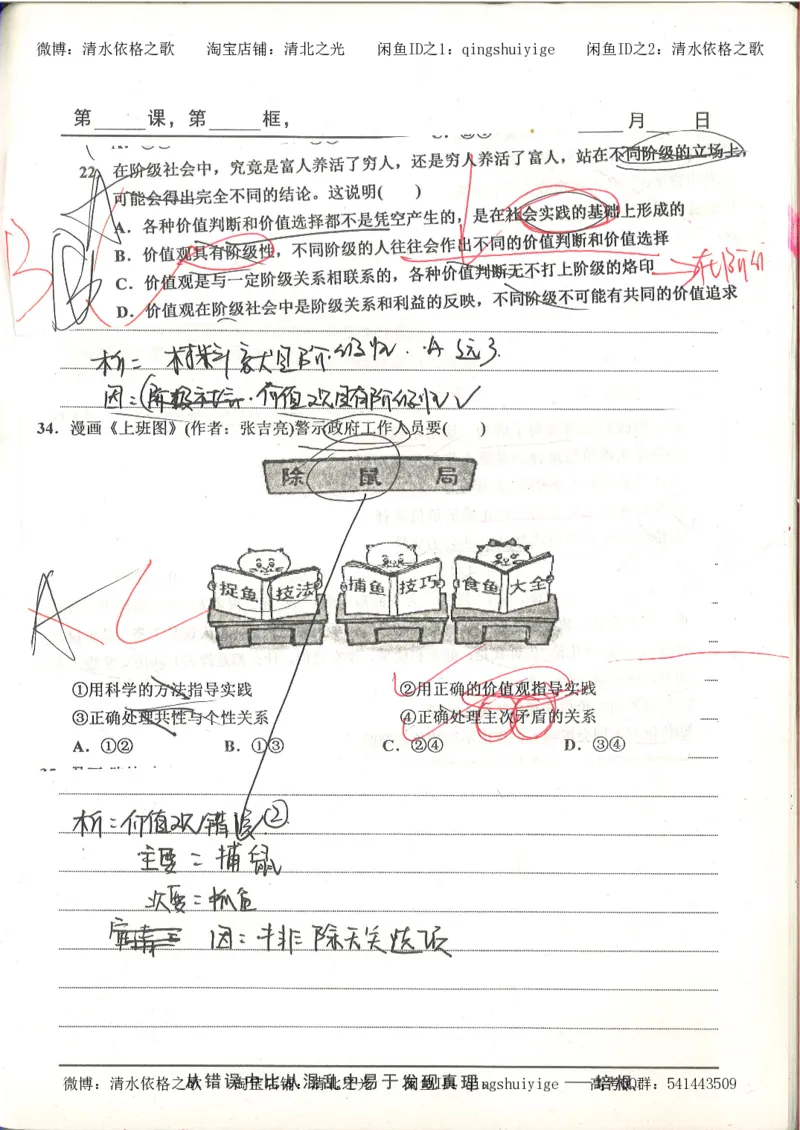 微博：清水依格之歌 淘宝店铺：清北之光 闲鱼ID之1：qingshuiyige 闲鱼ID之2：清水依格之歌
第 课，第 框， 月 日
22 在阶级社会中，究竟是富人养活了穷人，还是穷人养活了富人，站在不同阶级的立场上，
可能会得出完全不同的结论。这说明( )
A．各种价值判断和价值选择都不是凭空产生的，是在社会实践的基础上形成的
B．价值观具有阶级性，不同阶级的人往往会作出不同的价值判断和价值选择
C．价值观是与一定阶级关系相联系的，各种价值判断无不打上阶级的烙印
D．价值观在阶级社会中是阶级关系和利益的反映，不同阶级不可能有共同的价值追求
A
B
B
析：材料 阶级性．A 选了．
因：(阶级社会．价值观具有阶级性 ✓
34．漫画《上班图》(作者：张吉亮)警示政府工作人员要( )
除 鼠 局
捉鱼 技法 捕鱼 技巧 食鱼 大全
A C
①用科学的方法指导实践 ②用正确的价值观指导实践
③正确处理共性与个性关系 ④正确处理主次矛盾的关系
A．①② B．①③ C．②④ D．③④
析：价值观错误②
主要：捕鼠
次要：抓鱼
因：排除无关选项
从错误中比从混乱中易于发现真理。 ——培根
微博：清水依格之歌 淘宝店铺：清北之光 闲鱼ID：qingshuiyige QQ群：541443509